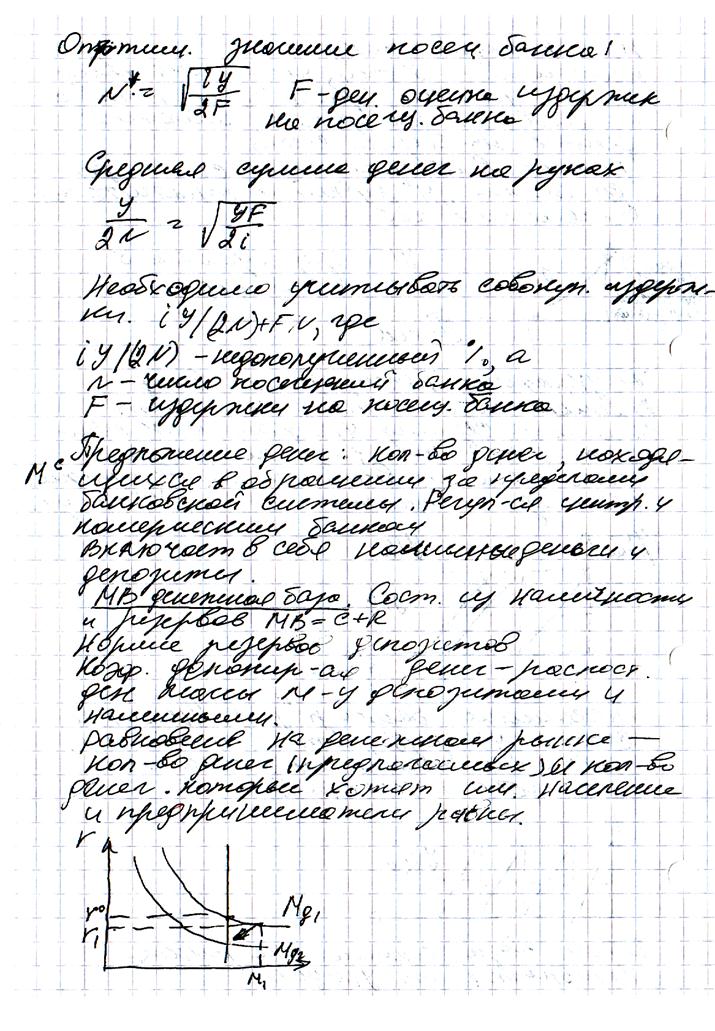 Оптим. значение посещ банка!
N* = √(iY/2F) F-ден. оценка издержек
на посещ. банка
Средняя сумма денег на руках
Y/2N = √(YF/2i)
Необходимо учитывать совокуп. издерж-
ки. iY/(2N)+F.N, где
iY/(2N) - недополученный %, а
N - число посещений банка
F - издержки на посещ. банка
Mс Предложение денег: кол-во денег, находя-
щихся в обращении за пределами
банковской системы. Регул-ся центр. и
коммерческим банком
Включает в себя наличные деньги и
депозиты.
MB денежная база. Сост. из наличности
и резервов MB = C+R
Норма резервов депозитов
Коэф. депонир-ая денег - распост.
ден массы м-у депозитами и
наличными.
равновесие на денежном рынке —
кол-во денег (предлагаемых) и кол-во
денег. которые хотят им. население
и предприниматели равны.
r
r⁰
r₁
Mд1
Mд2
M₁